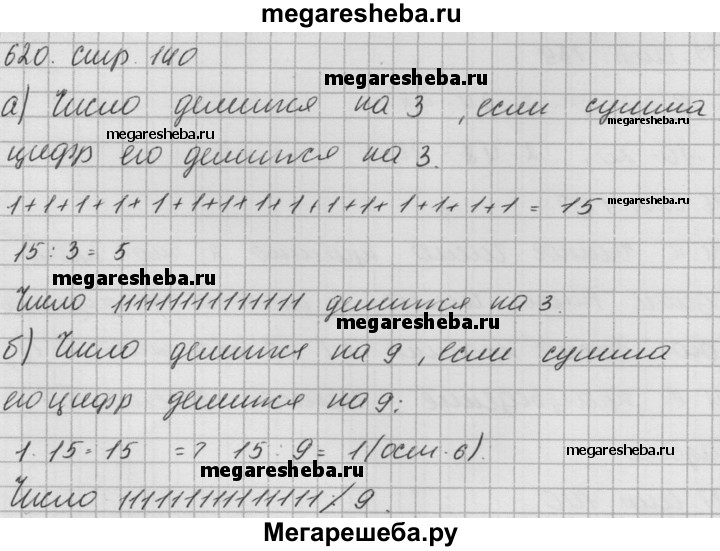 megaresheba.ru
620. стр. 140
megaresheba.ru
а) Число делится на 3, если сумма
megaresheba.ru
цифр его делится на 3.
1+1+1+1+1+1+1+1+1+1+1+1+1+1+1 = 15
megaresheba.ru
15 : 3 = 5
megaresheba.ru
Число 111111111111111 делится на 3.
megaresheba.ru
б) Число делится на 9, если сумма
его цифр делится на 9:
1 · 15 = 15 => 15 : 9 = 1 (ост. 6).
megaresheba.ru
megaresheba.ru
Число 111111111111111 ⁒ 9.
Мегарешеба.ру